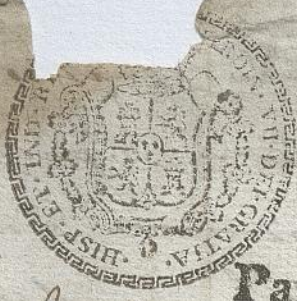 VII · DEI · GRATIA · HISP · ET · IND · R
Pa